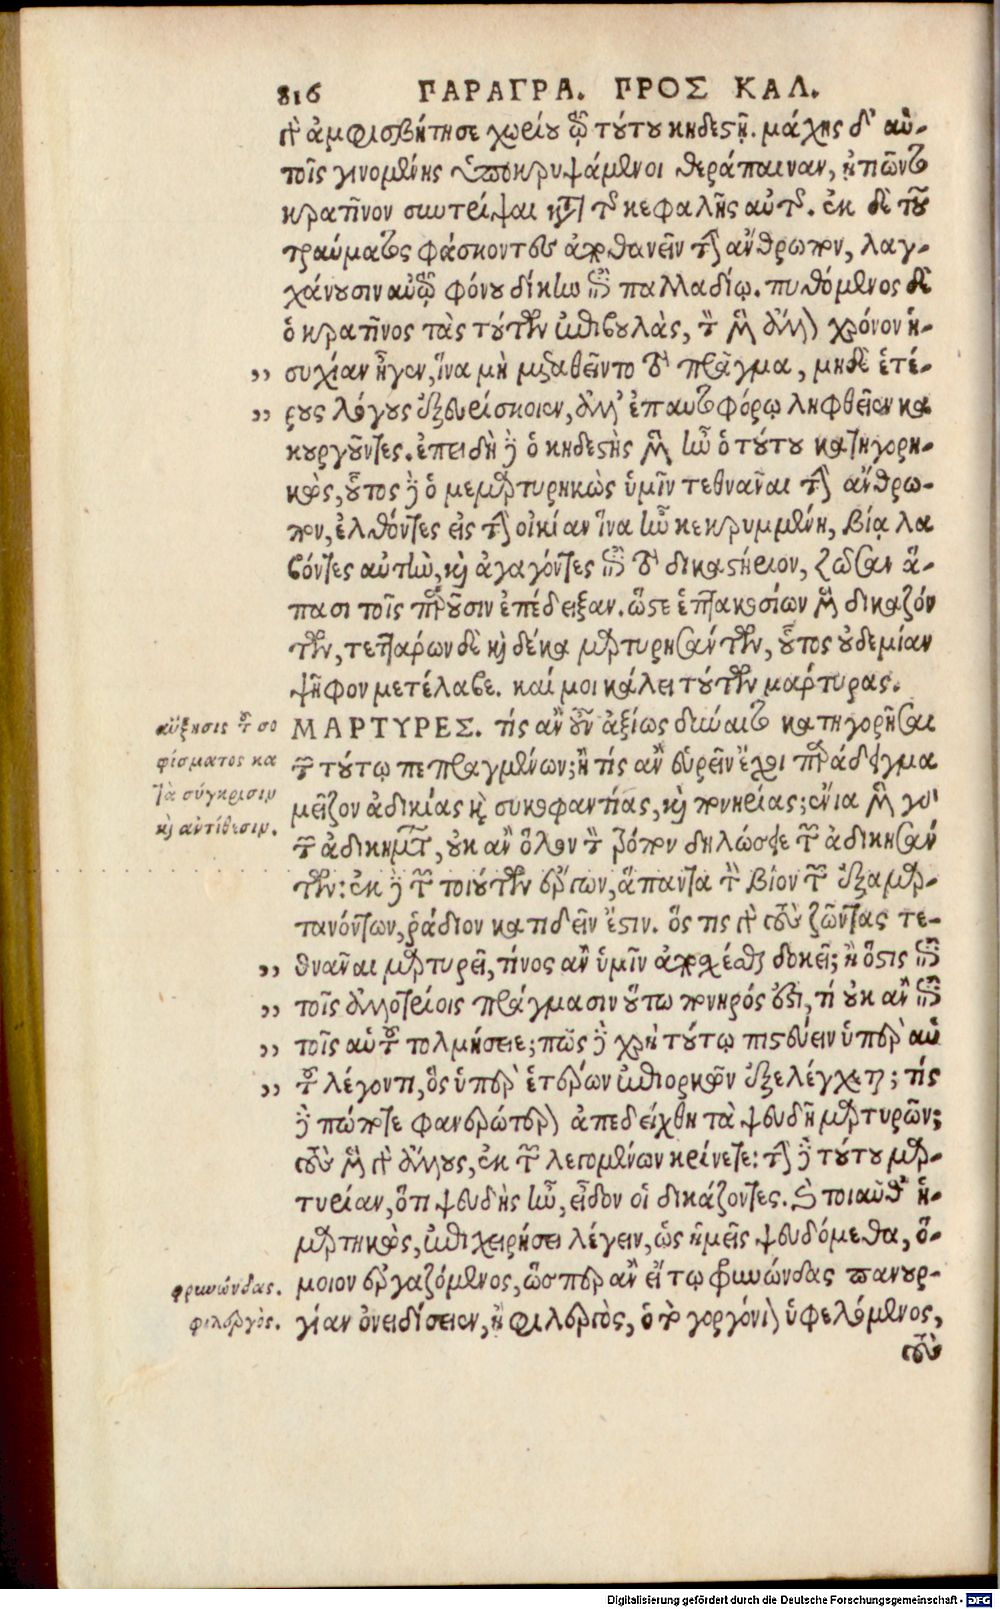 816 ΠΑΡΑΓΡΑ. ΠΡΟΣ ΚΑΛ.
καὶ ἀμφισβήτησε χωρίου τῷ τούτου κηδεστῇ. μάχης δ' αὐ-
τοῖς γινομένης ὑποκρυψάμενοι θεράπαιναν, ᾐτιῶντο
κρατῖνον συντρίψαι κατὰ τῆς κεφαλῆς αὐτῆς. ἐκ δὲ τοῦ
τραύματος φάσκοντες ἀποθανεῖν τὴν ἄνθρωπον, λαγ-
χάνουσιν αὐτῷ φόνου δίκην ἐπὶ παλλαδίῳ. πυθόμενος δὲ
ὁ κρατῖνος τὰς τούτων ἐπιβουλὰς, τὸν μὲν ἄλλον χρόνον ἡ-
„ συχίαν ἦγεν, ἵνα μὴ μεταθεῖντο τὸ πρᾶγμα, μηδὲ ἑτέ-
„ ρους λόγους ἐξευρίσκοιεν, ἀλλ' ἐπ' αυτοφόρῳ ληφθεῖεν κα
κουργοῦντες. ἐπειδὴ δὲ ὁ κηδεστὴς μὲν ἦν ὁ τούτου κατηγορη-
κὼς, οὗτος δὲ ὁ μεμαρτυρηκὼς ὑμῖν τεθνᾶναι τὴν ἄνθρω-
πον, ἐλθόντες εἰς τὴν οἰκίαν ἵνα ἦν κεκρυμμένη, βίᾳ λα
βόντες αὐτὴν, καὶ ἀγαγόντες ἐπὶ τὸ δικαστήριον, ζῶσαν ἅ-
πασι τοῖς παροῦσιν ἐπέδειξαν. ὥστε ἑπτακοσίων μὲν δικαζόν
των, τεττάρων δὲ καὶ δέκα μαρτυρησάντων, οὗτος οὐδεμίαν
ψῆφον μετέλαβε. καί μοι κάλει τούτων μαρτυρας.
ΜΑΡΤΥΡΕΣ. τίς ἂν οὖν ἀξίως δύναιτο κατηγορῆσαι
τῶν τούτῳ πεπραγμένων; ἢ τίς ἂν εὑρεῖν ἔχοι παράδειγμα
μεῖζον ἀδικίας καὶ συκοφαντίας, καὶ πονηρίας; ἔνια μὲν γὰρ
τῶν ἀδικημάτων, οὐκ ἂν ὅλον τὸν τρόπον δηλώσειε τῶν ἀδικησάν
των: ἐκ δὲ τῶν τοιούτων ἔργων, ἅπαντα τὸν βίον τῶν ἐξαμαρ-
τανόντων, ῥάδιον κατιδεῖν ἔστιν. ὅς τις γὰρ τοὺς ζῶντας τε-
„ θνᾶναι μαρτυρεῖ, τίνος ἂν ὑμῖν ἀποσχέσθαι δοκεῖ; ἢ ὅστις ἐπὶ
„ τοῖς ἀλλοτρίοις πράγμασιν οὕτω πονηρός ἐστι, τί οὐκ ἂν ἐπὶ
„ τοῖς αὑτοῦ τολμήσειε; πῶς δὲ χρὴ τούτῳ πιστεύειν ὑπὲρ αὑ
„ τοῦ λέγοντι, ὃς ὑπὲρ ἑτέρων ἐπιορκῶν ἐξελέγχεται; τίς
δὲ πώποτε φανερώτερον ἀπεδείχθη τὰ ψευδῆ μαρτυρῶν;
τοὺς μὲν γὰρ ἄλλους, ἐκ τῶν λεγομένων κρίνετε: τὴν δὲ τούτου μαρ-
τυρίαν, ὅτι ψευδὴς ἦν, εἶδον οἱ δικάζοντες. καὶ τοιαῦθ' ἡ-
μαρτηκὼς, ἐπιχειρήσει λέγειν, ὡς ἡμεῖς ψευδόμεθα, ὅ-
μοιον ἐργαζόμενος, ὥσπερ ἂν εἴ τῳ φρυνώνδας πανουρ-
γίαν ὀνειδίσειεν, ἢ φιλεργὸς, ὁ τὸ γοργόνιον ὑφελόμενος,
τοὺς
αὔξησις τοῦ σο
φίσματος κα
τὰ σύγκρισιν
καὶ ἀντίθεσιν.
φρυνώνδας.
φιλεργὸς.
Digitalisierung gefördert durch die Deutsche Forschungsgemeinschaft - DFG